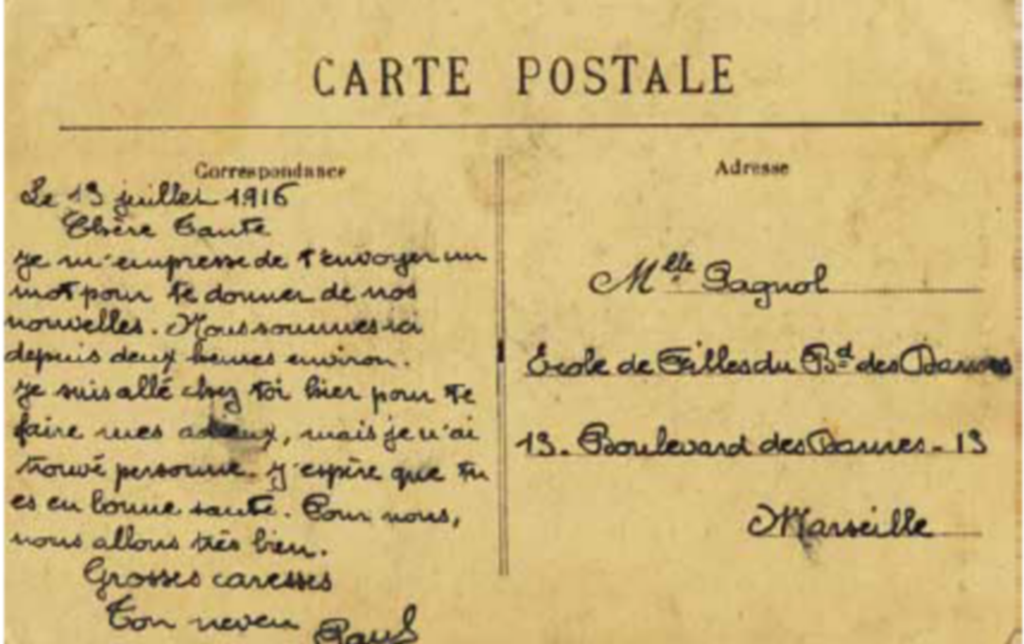 CARTE POSTALE
Correspondance
Le 13 juillet 1916
Chère Tante
je m'empresse de t'envoyer un
mot pour te donner de nos
nouvelles. Nous sommes ici
depuis deux heures environ.
je suis allé chez toi hier pour te
faire mes adieux, mais je n'ai
trouvé personne. J'espère que tu
es en bonne santé. Pour nous,
nous allons très bien.
Grosses caresses
Ton neveu Paul
Adresse
Mlle Pagnol
École de Filles du Bd des Dames
13. Boulevard des Dames - 13
Marseille